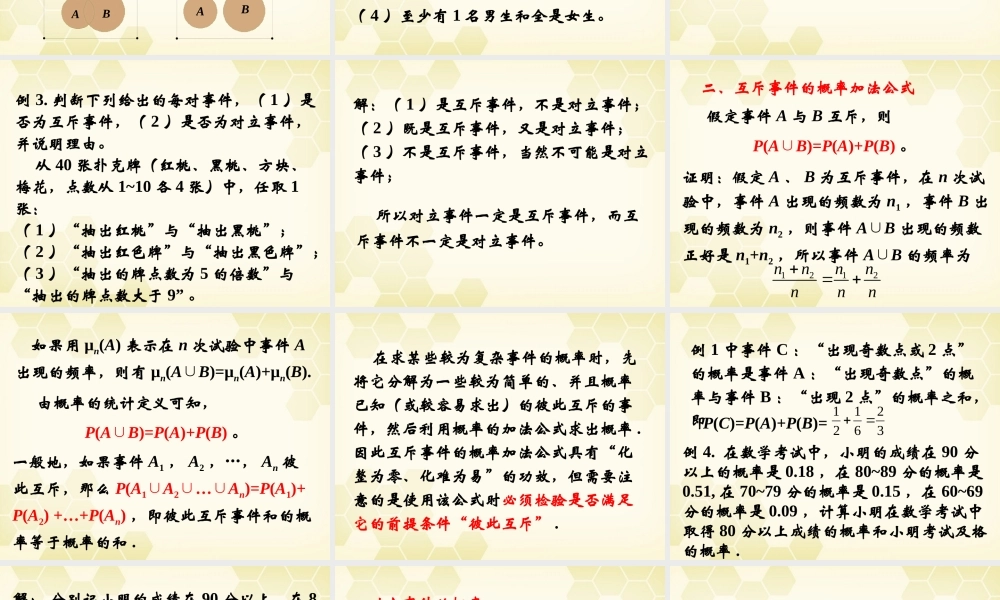 A B
A B
（4）至少有 1 名男生和全是女生。
例 3. 判断下列给出的每对事件，（1）是
否为互斥事件，（2）是否为对立事件，
并说明理由。
从 40 张扑克牌（红桃、黑桃、方块、
梅花，点数从 1~10 各 4 张）中，任取 1
张：
（1）“抽出红桃”与“抽出黑桃”；
（2）“抽出红色牌”与“抽出黑色牌”；
（3）“抽出的牌点数为 5 的倍数”与
“抽出的牌点数大于 9”。
解：（1）是互斥事件，不是对立事件；
（2）既是互斥事件，又是对立事件；
（3）不是互斥事件，当然不可能是对立
事件；
所以对立事件一定是互斥事件，而互
斥事件不一定是对立事件。
二、互斥事件的概率加法公式
假定事件 A 与 B 互斥，则
P(A∪B)=P(A)+P(B)。
证明：假定 A 、 B 为互斥事件，在 n 次试
验中，事件 A 出现的频数为 n1 ，事件 B 出
现的频数为 n2 ，则事件 A∪B 出现的频数
正好是 n1+n2 ，所以事件 A∪B 的频率为
(n1 + n2)/n = n1/n + n2/n
如果用 μn(A) 表示在 n 次试验中事件 A
出现的频率，则有 μn(A∪B)=μn(A)+μn(B).
由概率的统计定义可知，
P(A∪B)=P(A)+P(B)。
一般地，如果事件 A1 ， A2 ，…， An 彼
此互斥，那么 P(A1∪A2∪…∪An)=P(A1)+
P(A2) +…+P(An) ，即彼此互斥事件和的概
率等于概率的和 .
在求某些较为复杂事件的概率时，先
将它分解为一些较为简单的、并且概率
已知（或较容易求出）的彼此互斥的事
件，然后利用概率的加法公式求出概率 .
因此互斥事件的概率加法公式具有“化
整为零、化难为易”的功效，但需要注
意的是使用该公式时必须检验是否满足
它的前提条件“彼此互斥” .
例 1 中事件 C ：“出现奇数点或 2 点”
的概率是事件 A ：“出现奇数点”的概
率与事件 B ：“出现 2 点”的概率之和，
即P(C)=P(A)+P(B)= 1/2 + 1/6 = 2/3
例 4. 在数学考试中，小明的成绩在 90 分
以上的概率是 0.18 ，在 80~89 分的概率是
0.51, 在 70~79 分的概率是 0.15 ，在 60~69
分的概率是 0.09 ，计算小明在数学考试中
取得 80 分以上成绩的概率和小明考试及格
的概率 .
解：分别记小明的成绩在 90 分以上，在 8